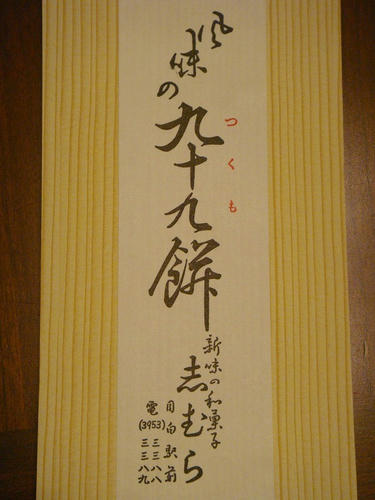 風味の
九十九餅
つくも
新味の和菓子
志むら
目白駅前
電(3953)三三八八
三三八九